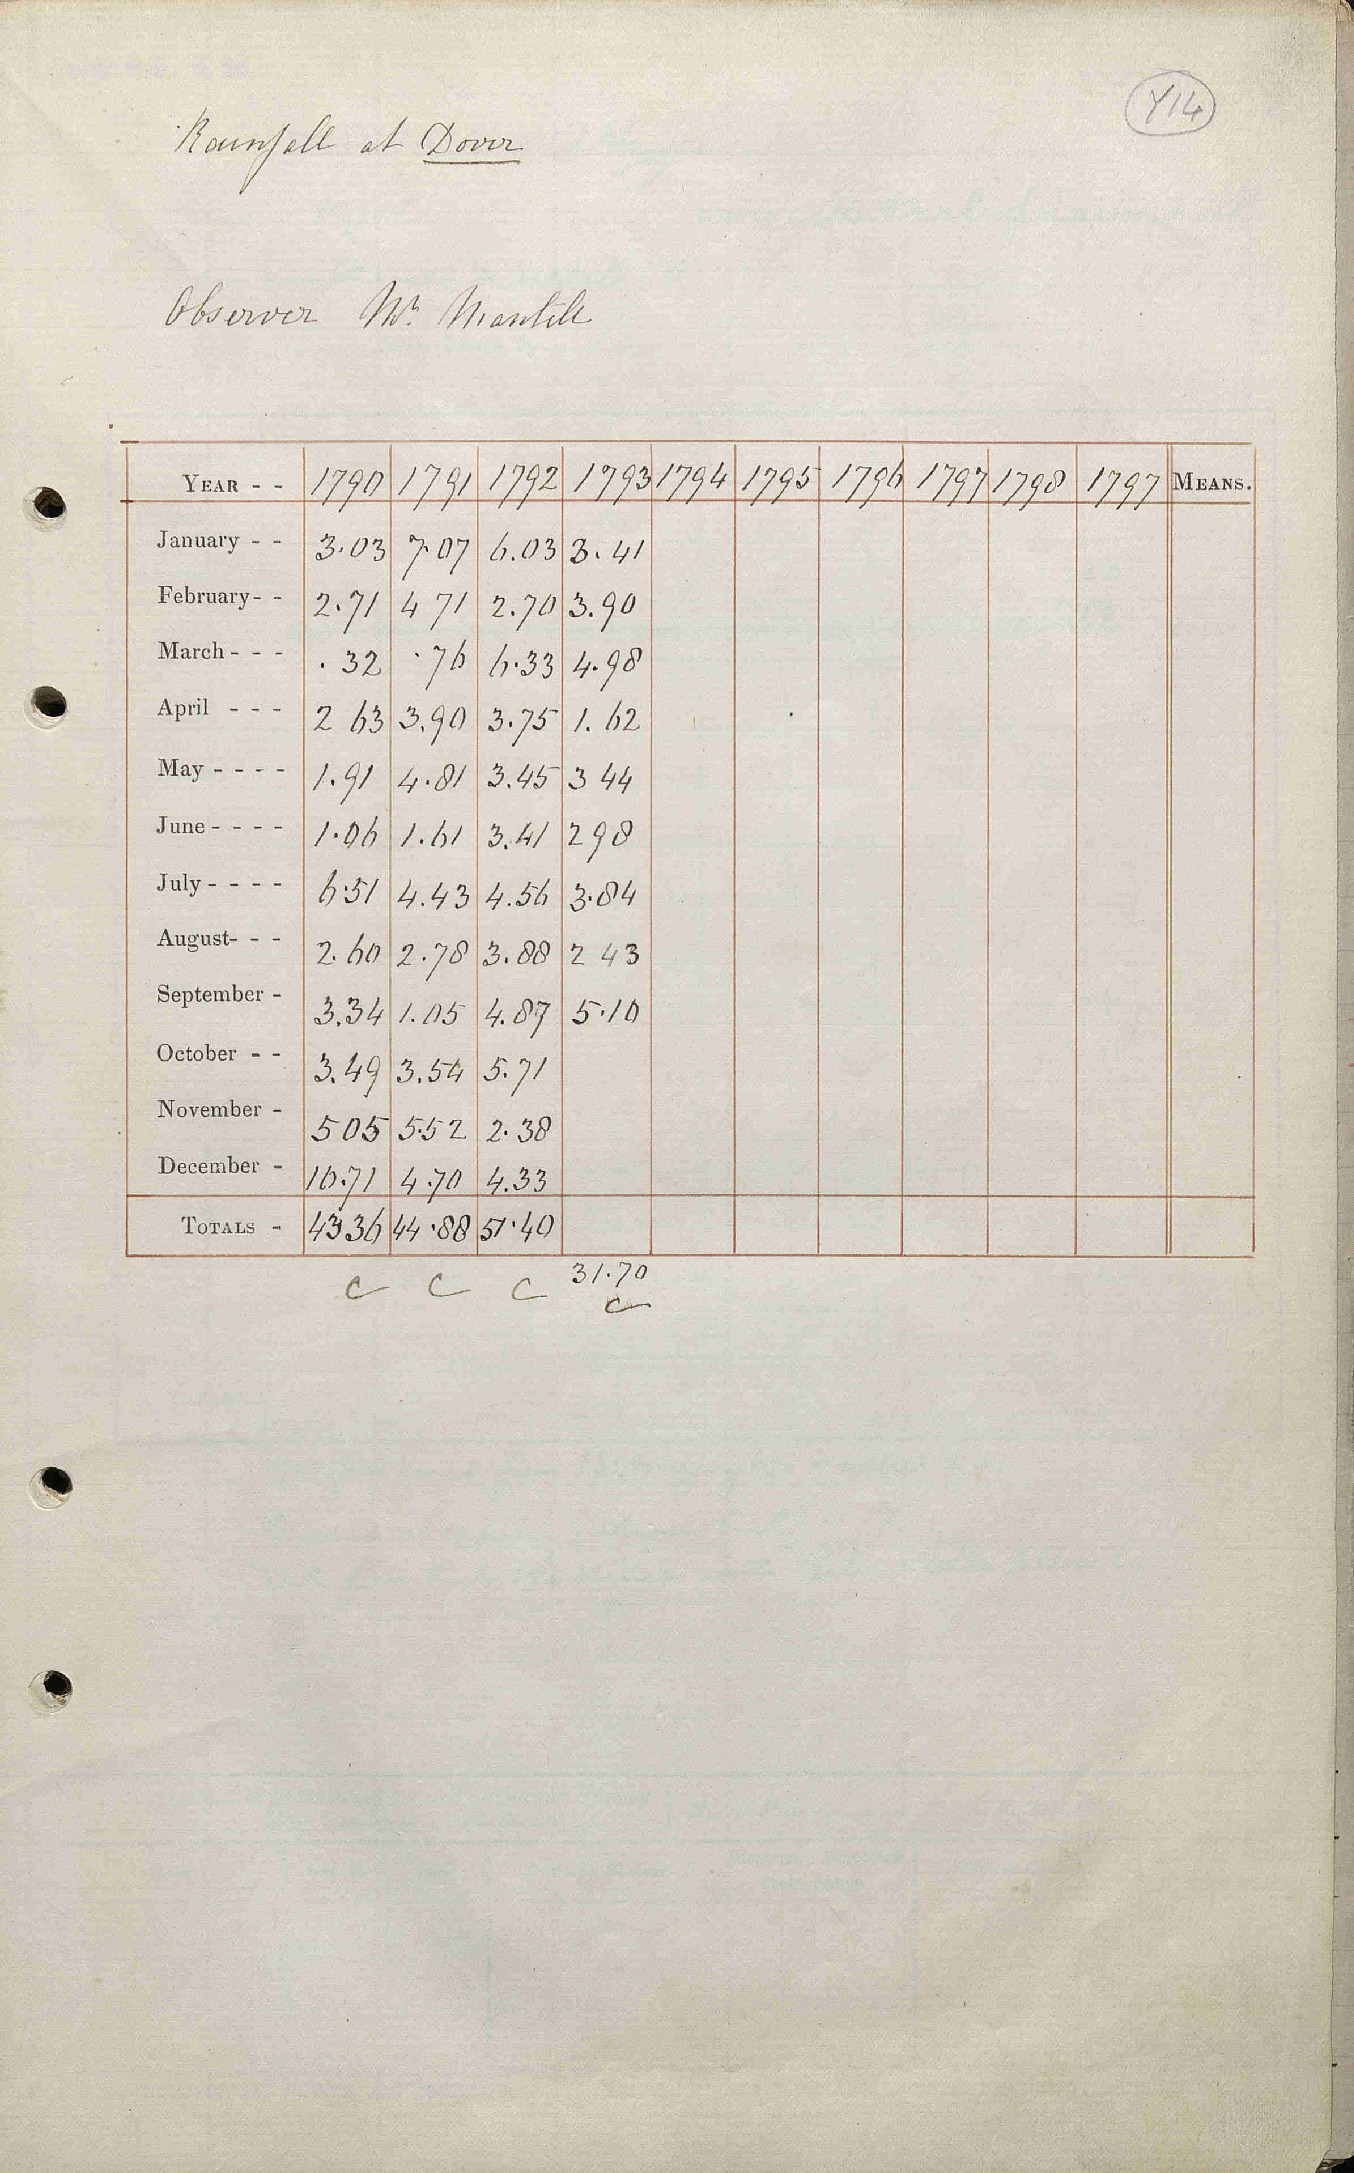 Y14
Rainfall at Dover
Observer Mr. Mantell
YEAR - - 1790 1791 1792 1793 1794 1795 1796 1797 1798 1797 MEANS.
January - - 3.03 7.07 6.03 3.41
February - - 2.71 4 71 2.70 3.90
March - - - .32 .76 6.33 4.98
April - - - 2 63 3.90 3.75 1.62
May - - - - 1.91 4.81 3.45 3 44
June - - - - 1.06 1.61 3.41 2 98
July - - - - 6.51 4.43 4.56 3.84
August - - - 2.60 2.78 3.88 2 43
September - 3.34 1.05 4.87 5.10
October - - 3.49 3.54 5.71
November - 5 05 5.52 2.38
December - 10.71 4.70 4.33
TOTALS - 43 36 44.88 51.40
31.70
C C C
C